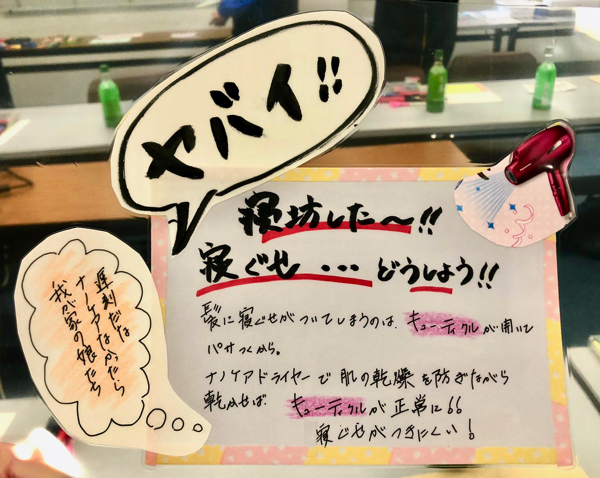 ヤバイ!!
寝坊した〜!!
寝ぐせ・・・どうしよう!!
髪に寝ぐせがついてしまうのは、キューティクルが開いて
パサつくから。
ナノケアドライヤーで肌の乾燥を防ぎながら
乾かせば キューティクルが正常に!!
寝ぐせがつきにくい!
遅刻だな
ナノケアなかったら
我が家の娘たち